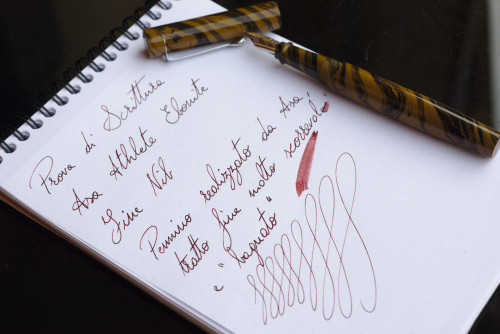 Prova di Scrittura
Asa Athlete Ebonite
Fine Nib
Pennino realizzato da Asa!
tratto fine molto scorrevole
e "bagnato"